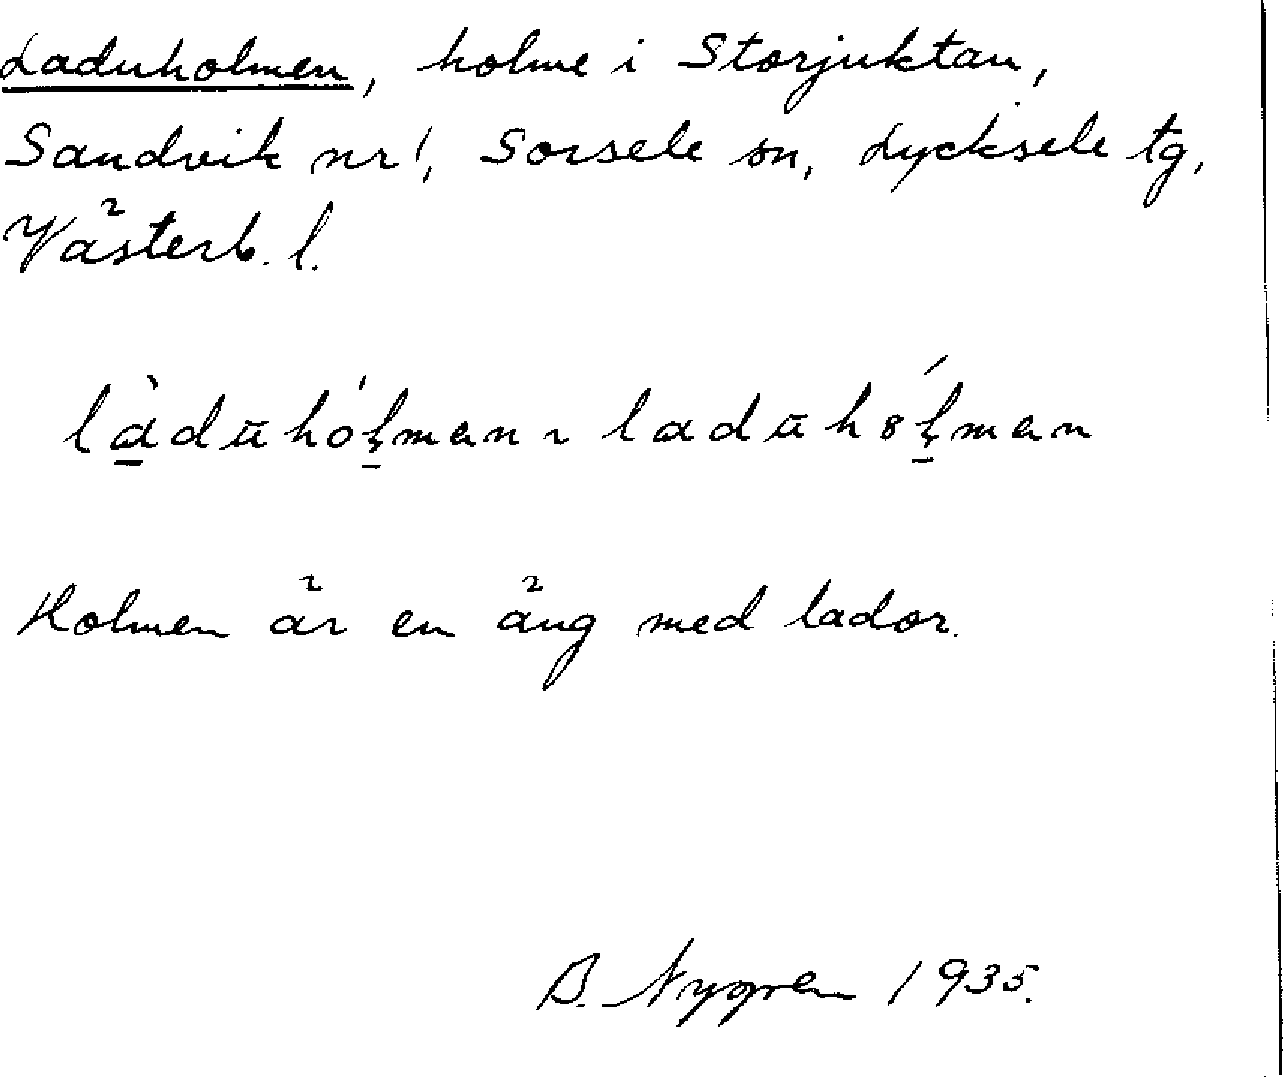 Laduholmen, holme i Storjuktan,
Sandvik nr 1, Sorsele sn, Lycksele tg,
Västerb. l.
Holmen är en äng med lador.
B. Nygren 1935.